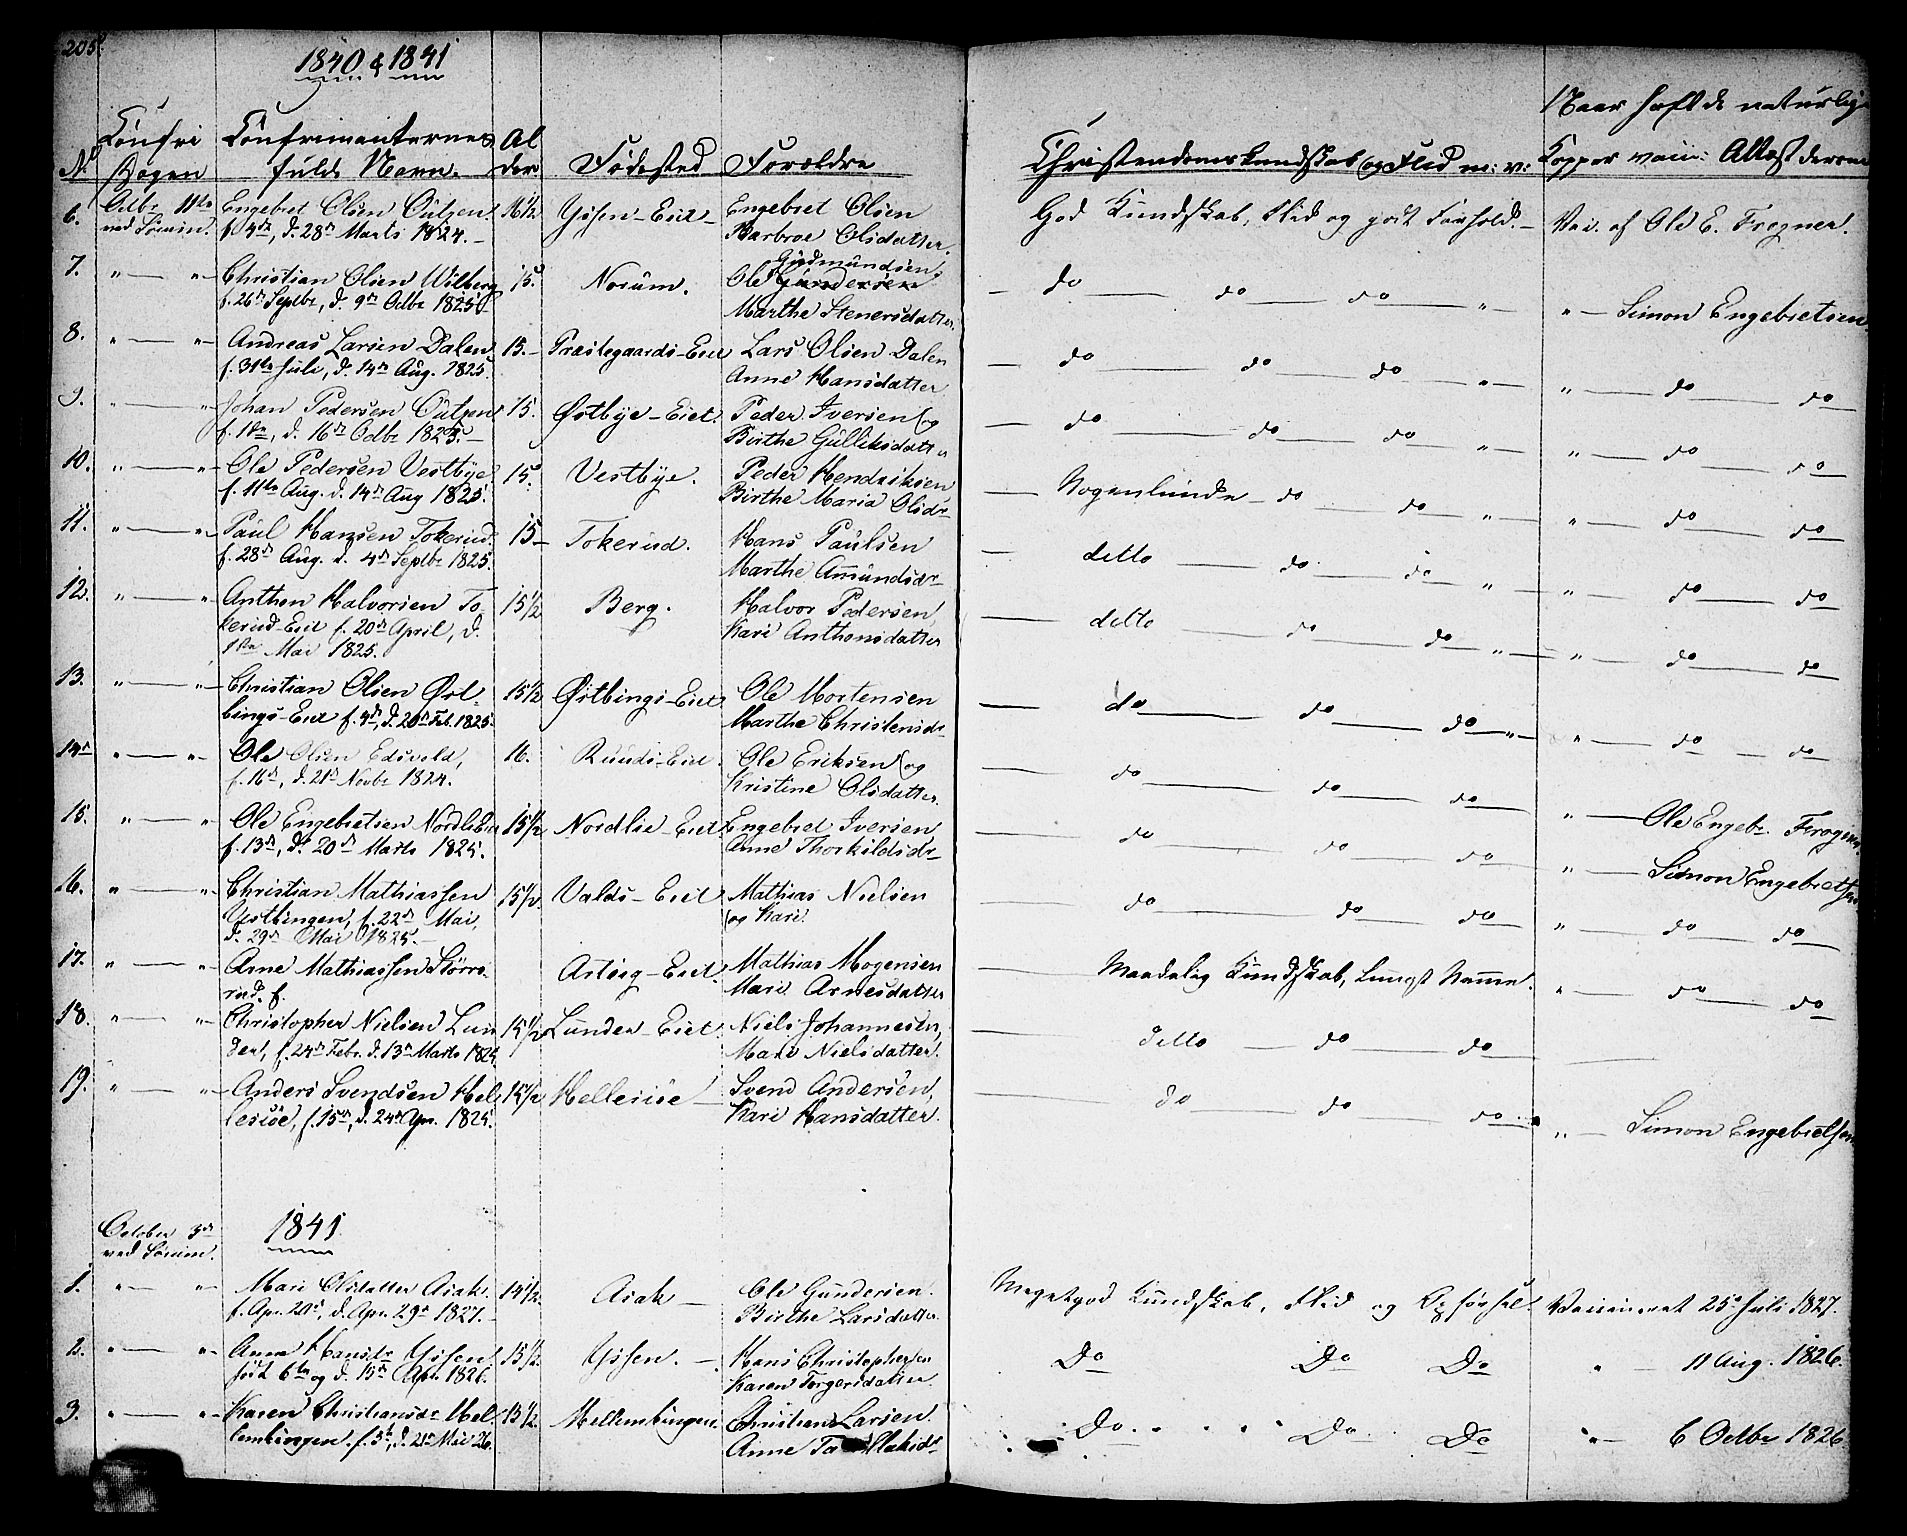 205.
1840 & 1841
No Confirm Dagen Confirmanternes fulde Navn. Alder Fødested Forældre Christendomskundskab og Flid m: v: Naar havt de naturlige Kopper eller vacc: Attest derom
6. Octbr 11te ved Sørum. Engebret Olsen 16 1/2 Yssen-Eiet Engebret Olsen God Kundskab, Flid og godt Forhold. Vac. af Ole E. Frogner.
f. 4de, d. 28de Marts 1824. Barbroe Olsdatter
7. " — " Christian Olsen Wilberg 15. Norum. Ole Gundersen Gudmundsen do do do " " Simon Engebretsen
f. 26de Septbr, d. 9de Octbr 1825. Marthe Stenersdatter
8. " — " Andreas Larsen Dalen 15. Præstegaards-Eiet Lars Olsen Dalen do do do " " do do
f. 31te Juli, d. 14de Aug. 1825. Anne Hansdatter
9. " — " Johan Pedersen 15. Østbye-Eiet. Peder Iversen og do do do " " do do
f. 1ste, d. 16de Octbr 1825. Birthe Gulliksdatter
10. " — " Ole Pedersen Vestbye 15. Vestbye. Peder Hendriksen Nogenlunde do do " " do do
f. 11te Aug. d. 14de Aug 1825. Birthe Maria Olsdr
11. " — " Paul Hansen Tokerud. 15 Tokerud. Hans Paulsen ditto do do " " do do
f. 28de Aug. d. 4de Septbr 1825. Marthe Amundsdr
12. " — " Anthon Halvorsen To- 15 1/2 Berg. Halvor Pedersen, ditto do do " " do do
kerud-Eiet f. 20de April, d. Kari Anthonsdatter
1ste Mai 1825.
13. " — " Christian Olsen Øst- 15 1/2 Østbings-Eiet Ole Mortensen do do do " " do do
bings-Eiet f. 4de, d. 20de Feb. 1825. Marthe Christensdr
14. " — " Ole Olsen Edsvold, 16. Ruuds-Eiet. Ole Eriksen og do do do " Ole Engebr. Frogner
f. 16de, d. 21de Novbr 1824. Kristine Olsdatter.
15. " — " Ole Engebretsen Nordlie Eiet 15 1/2 Nordlie-Eiet Engebret Iversen do do do " Simon Engebretsen
f. 13de, d. 20de Marts 1825. Anne Thorkildsdr
16. " — " Christian Mathiassen 15 1/2 Valds-Eiet Mathias Nielsen do do do " do do
Vestbingen, f. 22de Mai, og Kari
d. 29de Mai 1825.
17. " — " Arne Mathiassen Større- Mathias Mogensen Maadelig Kundskab, " do do
rud. f. Mari Arnesdatter
18. " — " Christopher Nielsen Lun- 15 1/2 Lunder-Eiet Niels Johannesen, ditto do do
der, f. 24de Febr. d. 13de Marts 1825. Mari Nielsdatter.
19. " — " Anders Svendsen Hel- 15 1/2 Hellesiøe Svend Andersen, do do do " Simon Engebretsen
lesiøe, f. 15de, d. 24de Apr. 1825. Kari Hansdatter.
October 3de ved Sørum. 1841
1. " — " Mari Olsdatter Asak. 14 1/2. Asak Ole Gundersen. Meget god Kundskab, Flid og Opførsel. Vaccineret 25de Juli 1827.
f. Apr. 20de, d. Apr. 29de 1827. Birthe Larsdatter.
2. " — " Anne Hansdr Yssen 15 1/2. Yssen. Hans Christophersen Do Do Do " 11 Aug. 1826.
født 6te og d. 15de Apr. 1826. Karen Torgersdatter.
3. " — " Karen Christiansdr Mel- 15 1/2. Mellembingen Christian Larsen. Do. Do. Do " 6 Octbr 1826
lembingen. f. 3de, d. 21de Mai 26. Anne